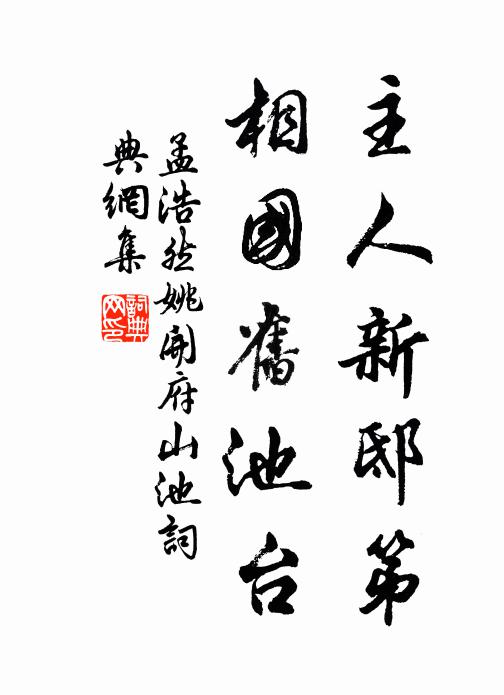 主人新邸第
相國舊池台
孟浩然姚開府山池詞
典網集
詞典網印